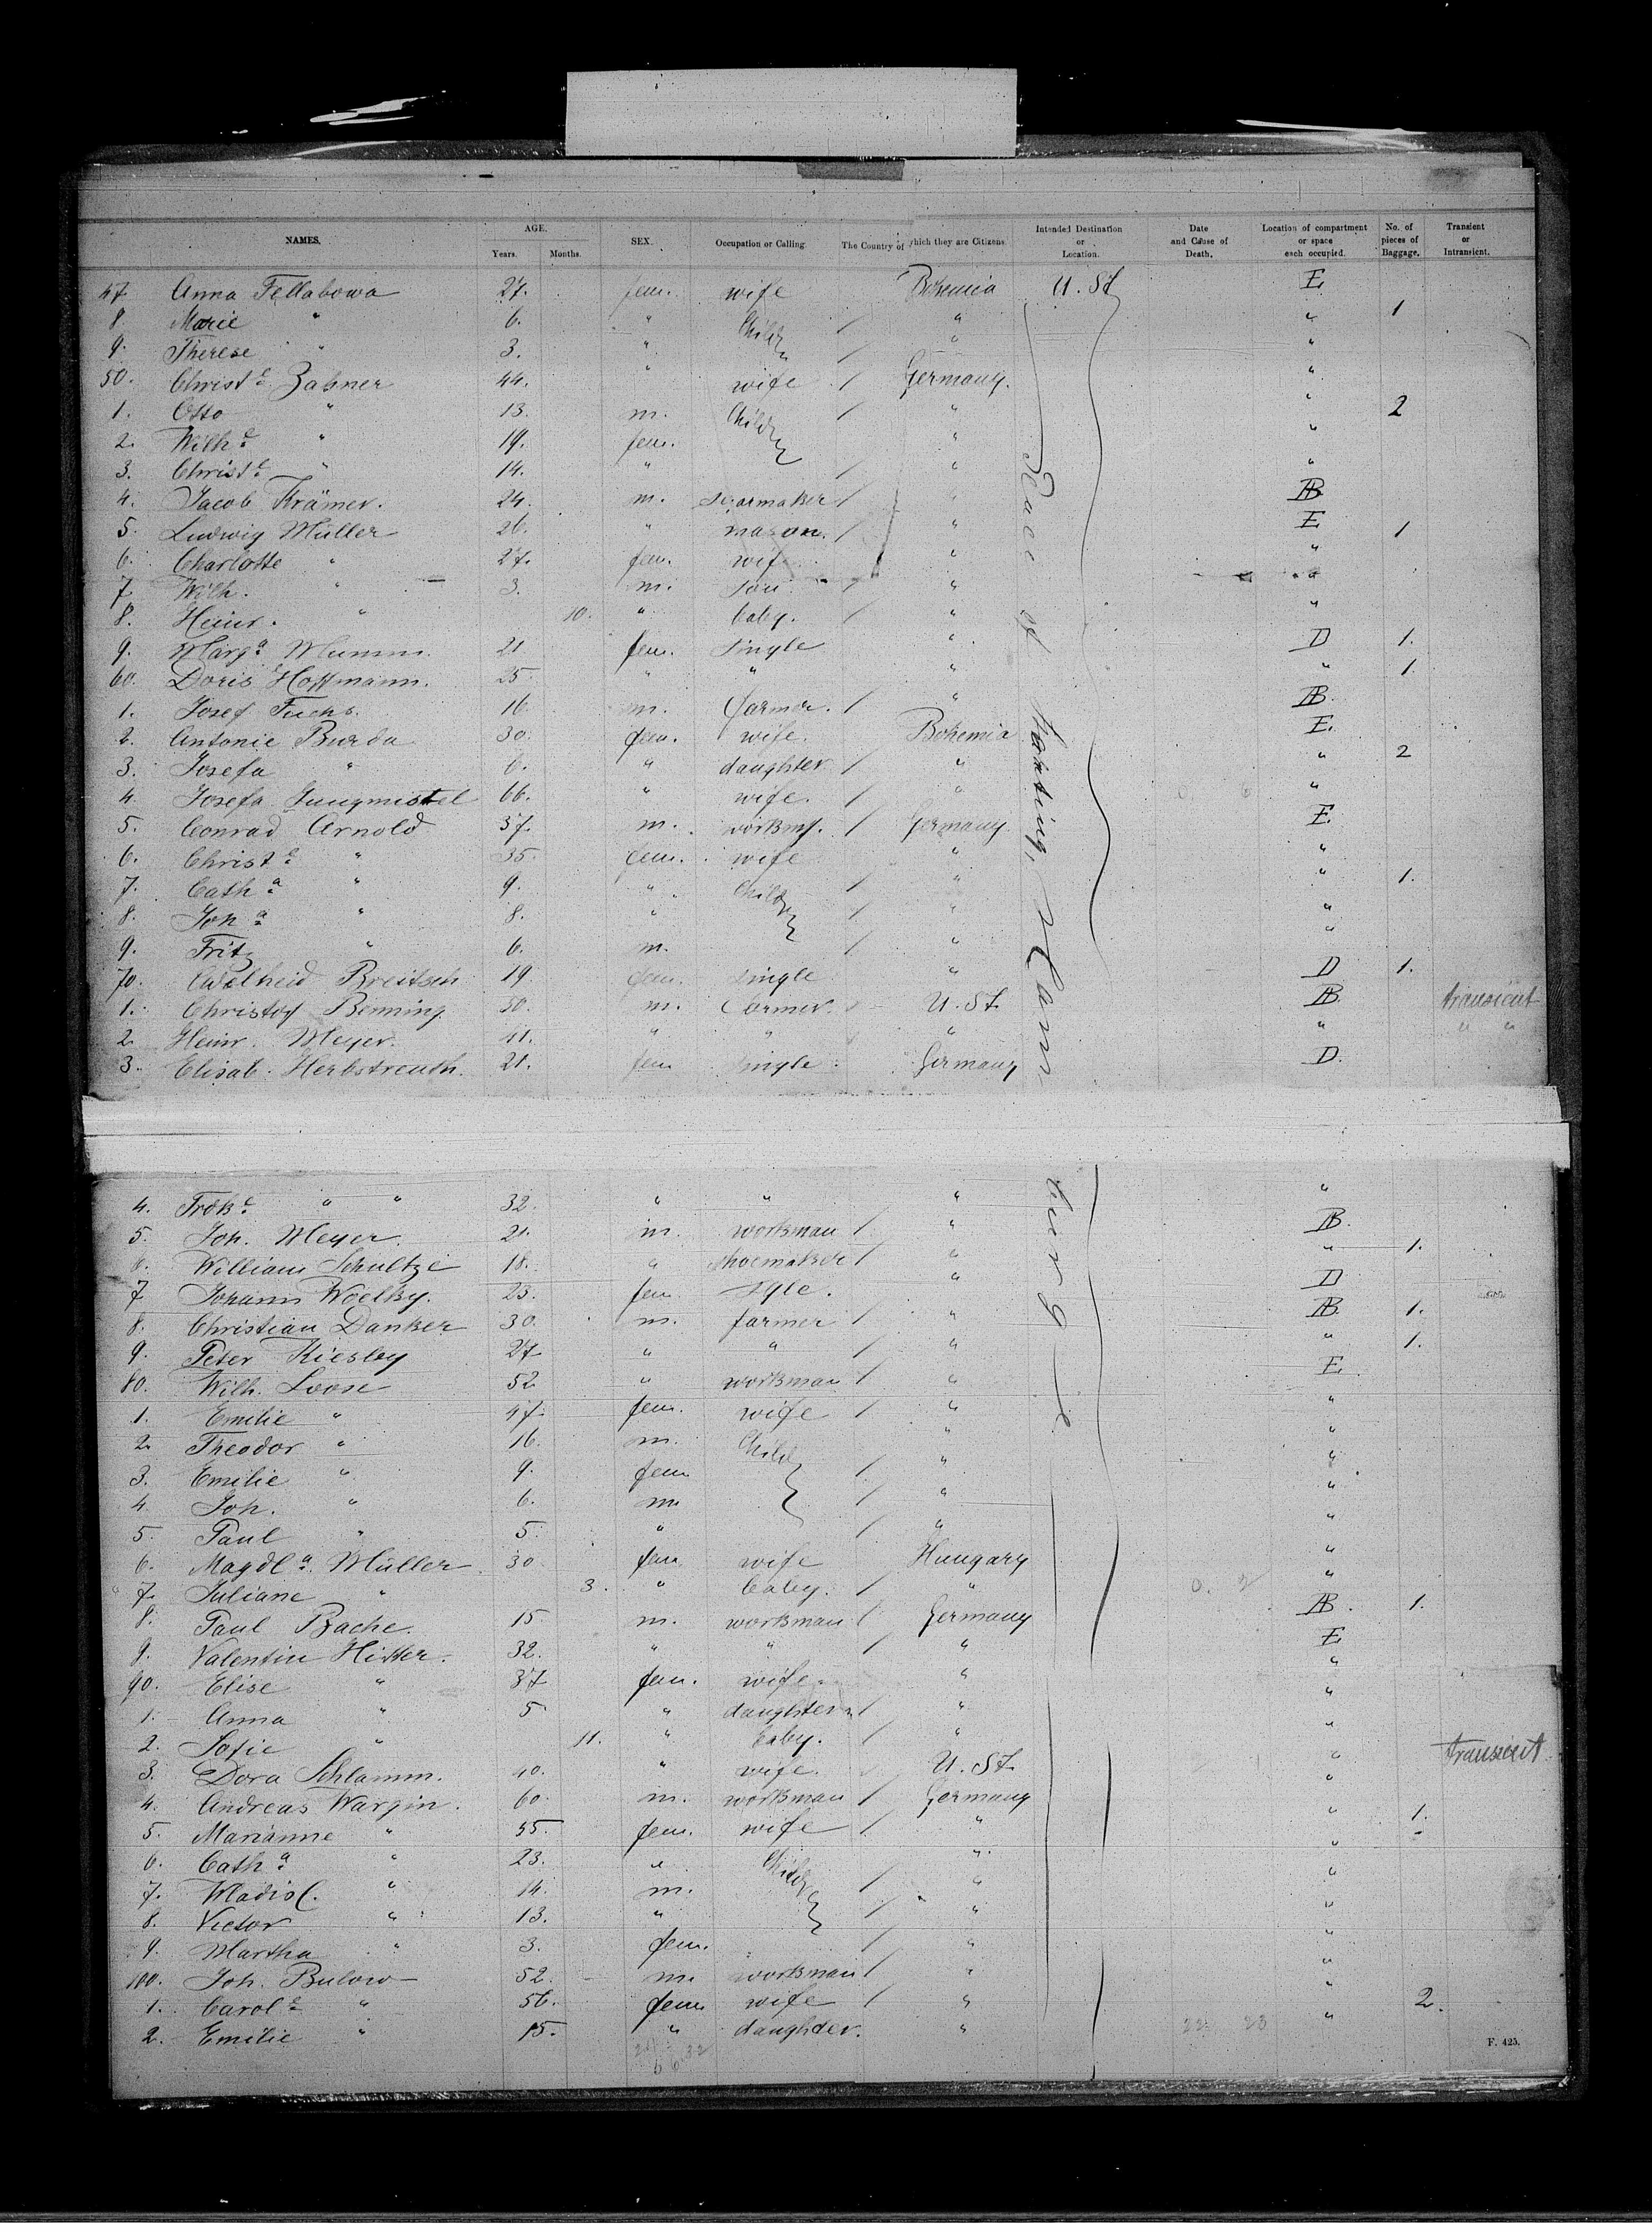 NAMES. AGE. Years. Months. SEX. Occupation or Calling. The Country of which they are Citizens. Intended Destination or Location. Date and Cause of Death. Location of compartment or space each occupied. No. of pieces of Baggage. Transient or Intransient.
47 Anna Fellabowa 27. fem. wife Bohemia U. St. E
8. Marie " 6. " Child / " " 1
9. Therese " 3. " / " "
50. Christe Zahner 44. " wife / Germany. "
1. Otto " 13. m. Child / " " 2
2. Wilhe " 19. fem. " "
3. Christe " 14. " / " "
4. Jacob Krämer. 24. m. / " AB
5. Ludwig Müller 26. " mason. / " E 1
6. Charlotte " 27. fem. wife " "
7 Wilh. " 3. m. son / " "
8. Heinr. " 10. " baby. / " "
9. Marga Mumm. 21 fem. single " D 1.
60. Doris Hoffmann. 25 " " " " 1.
1. Josef Fuchs. 16 m. farmer. / " AB.
2. Antonie Burda 30. fem. wife. Bohemia E.
3. Josefa " 6. " daughter / " " 2
4 Josefa Jungmistel 66. " wife. / " "
5. Conrad Arnold 37. m. workmn. / Germany E.
6. Christe " 35. fem. wife " "
7. Catha " 9. " Child / " " 1.
8. Joha " 8. " / " "
9. Fritz " 6. m. / " "
70. Adelheid Breitsch 19 fem. single " D 1.
1. Christof Benning 50. m. farmer. U. St. AB. transient
2. Heinr. Meyer. 41. " " " " " "
3. Elisab. Herbstreuth. 21. fem single. Germany D.
Place of starting, Hamburg
4. Frdke " " 32. " " " "
5. Joh. Meyer. 21. m. workman / " AB.
6. William Schultze 18. " shoemaker / " " 1.
7 Johann Woelky. 23. fem sgle. " D
8. Christian Danker 30. m. farmer / " AB. 1.
9. Peter Kiesley 27 " " / " " 1.
80. Wilh. Loose 52 " workman / " E
1. Emilie " 47. fem. wife / " "
2. Theodor " 16. m. Child " "
3. Emilie " 9. fem / " "
4. Joh. " 6. m. / " "
5. Paul " 5. " / " "
6. Magdla. Müller 30 fem wife Hungary "
7. Juliane " 3. " baby. / " "
8. Paul Bache. 15 m. workman / Germany AB. 1.
9. Valentin 32. " " / " E
90. Elise " 37 fem. wife " "
1. Anna " 5. " daughter / " "
2. Sofie " 11. " baby. / " "
3. Dora Schlamm. 40. " wife. U. St. " transient
4. Andreas Wargin. 60. m. workman / Germany "
5. Marianne " 55. fem. wife / " " 1.
6. Catha " 23. " Child " "
7. Wladisl. " 14. m. / " "
8. Victor " 13. " / " "
9. Martha " 3. fem. / " "
100. Joh. Bulow 52. m. workman / " "
1. Carole " 56. fem wife / " " 2.
2. Emilie " 15. " daughter. " "
F. 425.